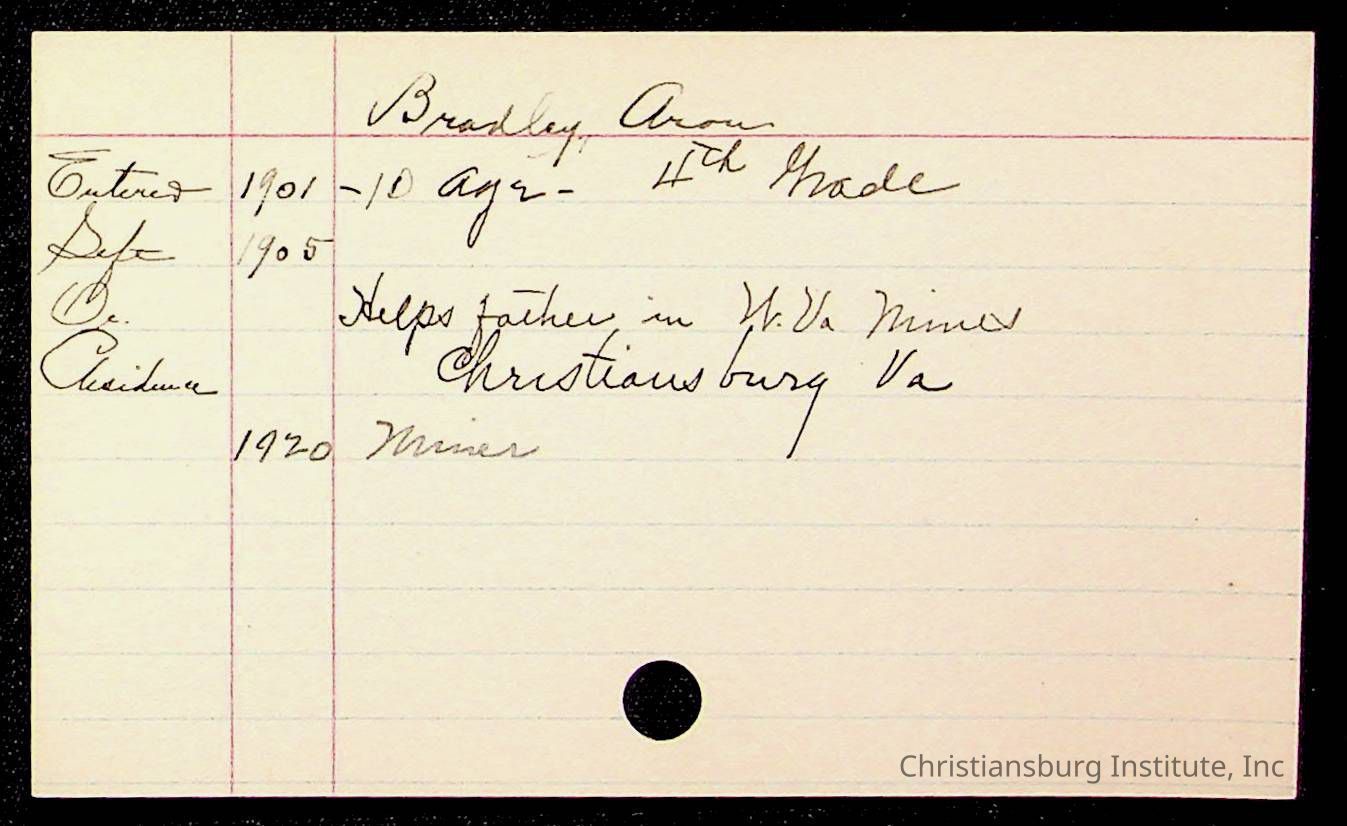 Bradley, Aron
Entered 1901 - 10 age - 4th Grade
Left 1905
Oc. Helps father in W. Va Mines
Residence Christiansburg Va
1920 Miner
Christiansburg Institute, Inc